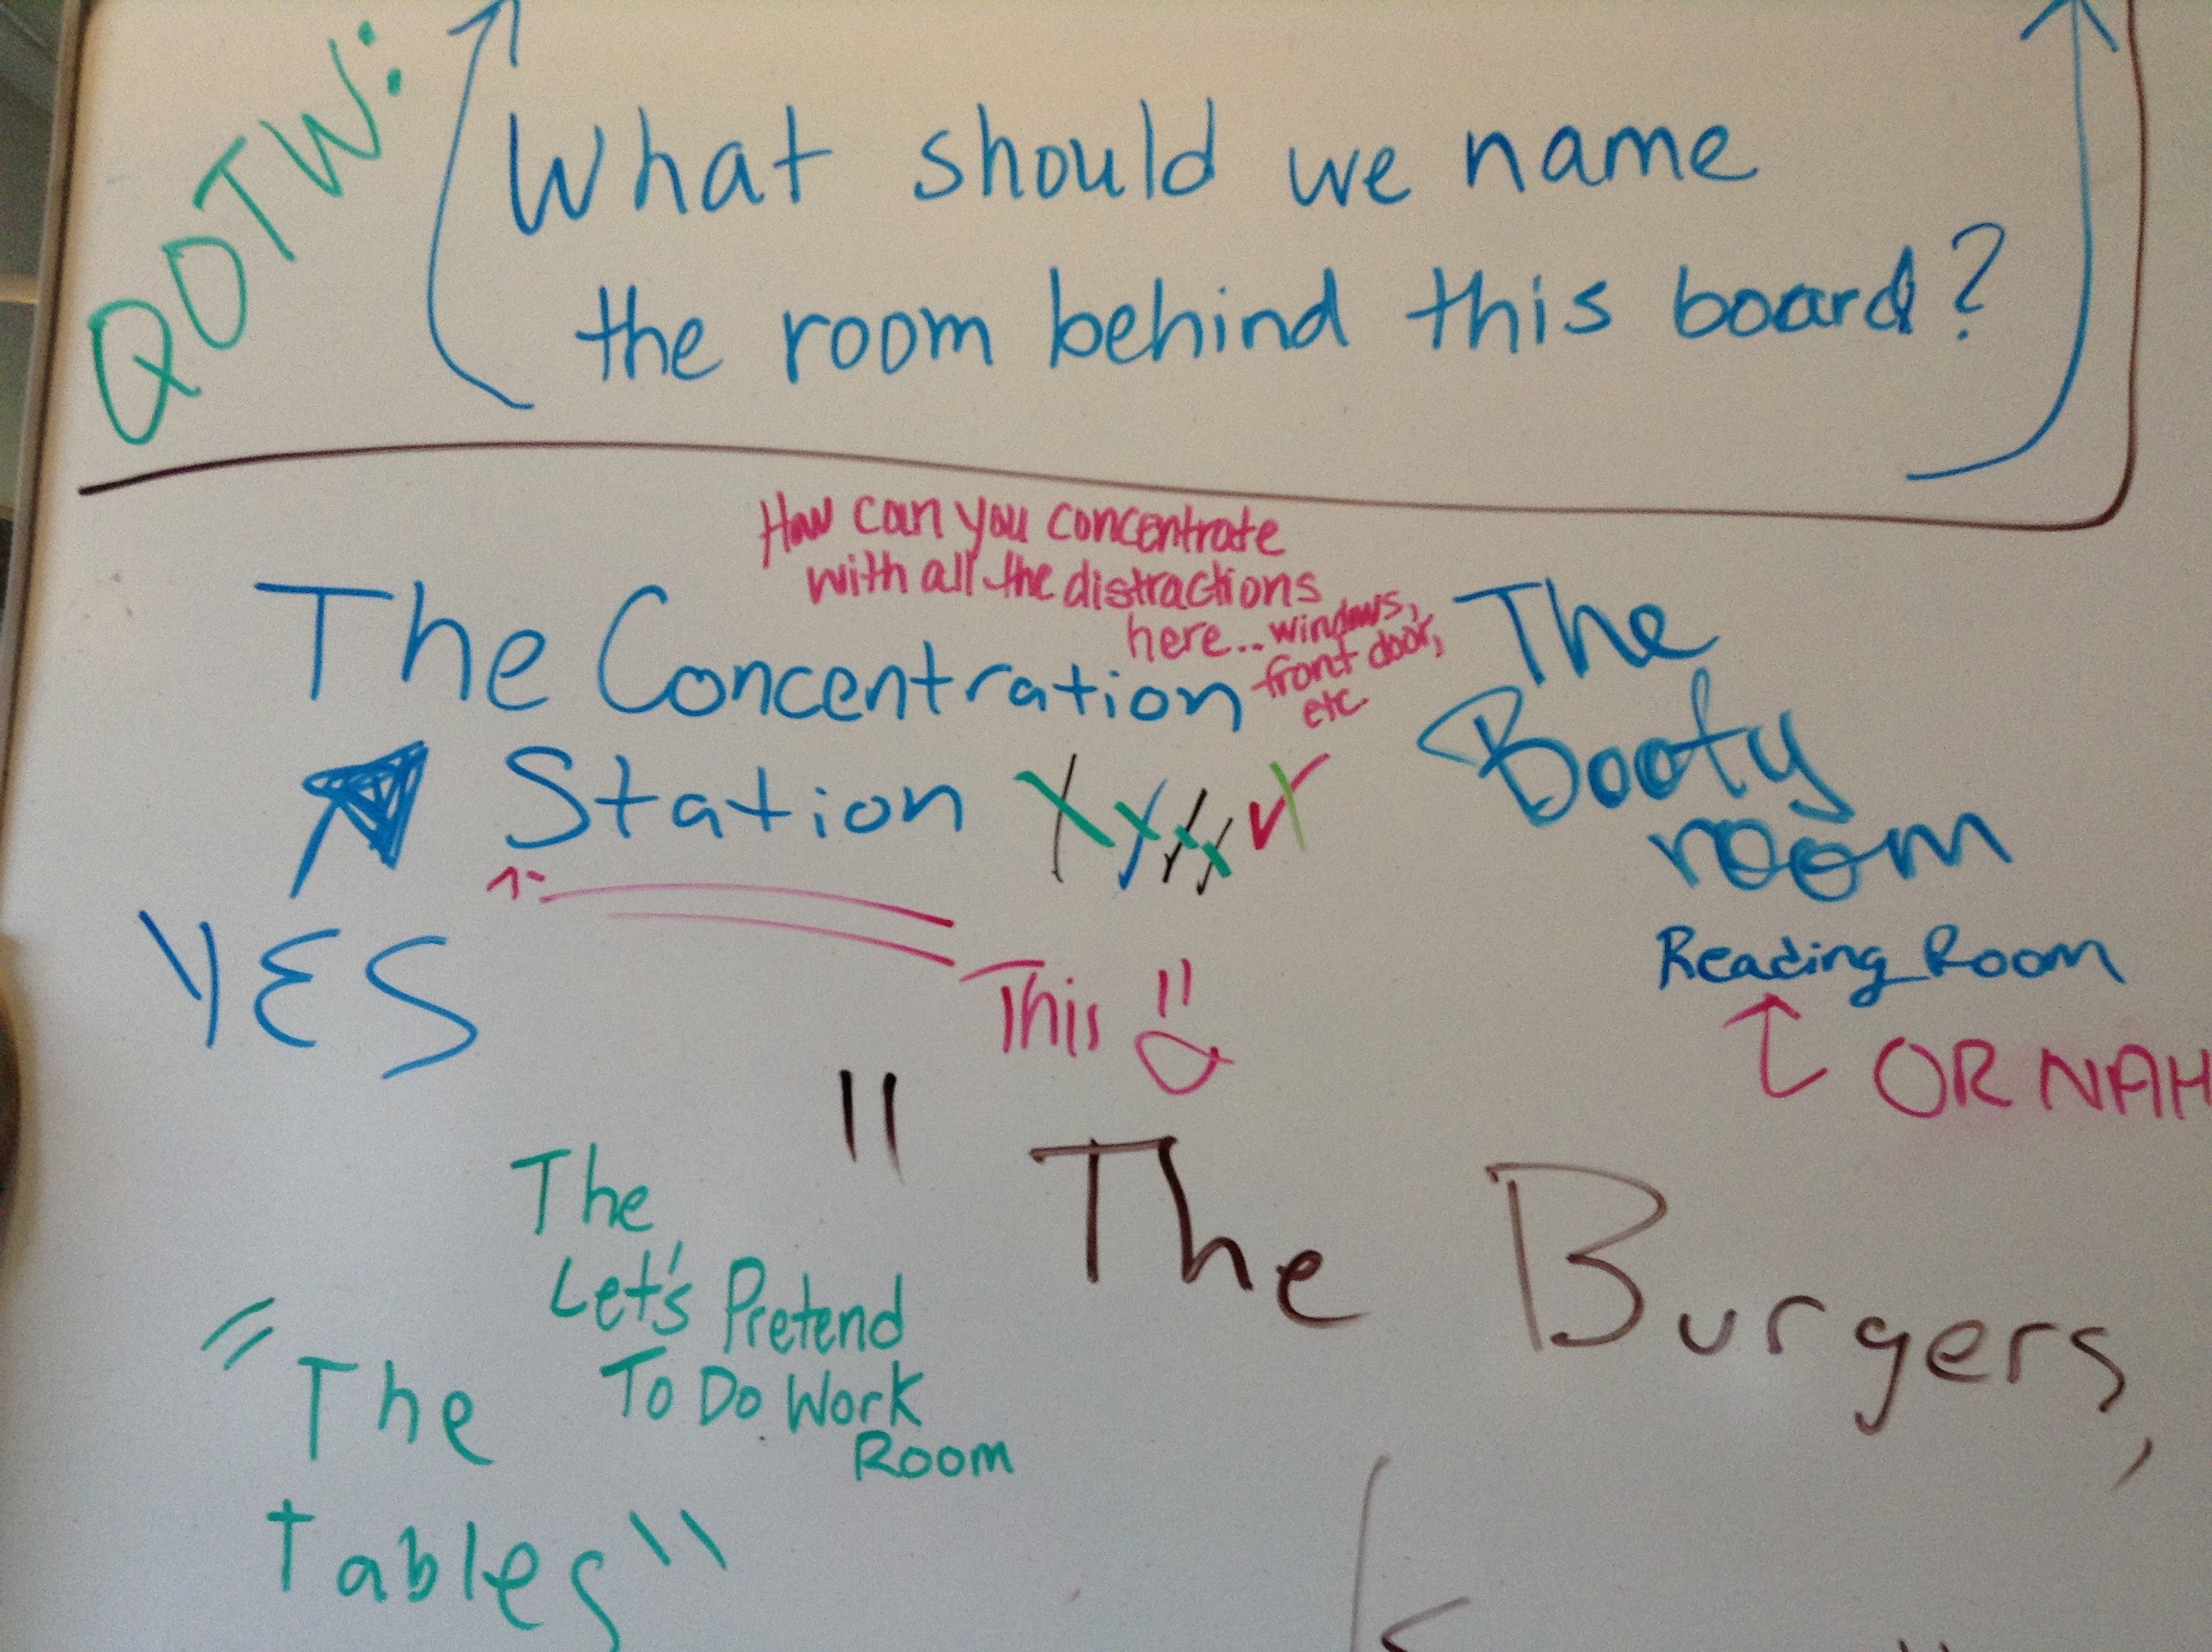 QOTW:
What should we name
the room behind this board?
How can you concentrate
with all the distractions
here... windows,
front door,
etc.
The Concentration
Station
YES
This
The
Booty
room
Reading Room
OR NAH
The
Let's Pretend
To Do Work
Room
"The
Tables"
" The Burgers,